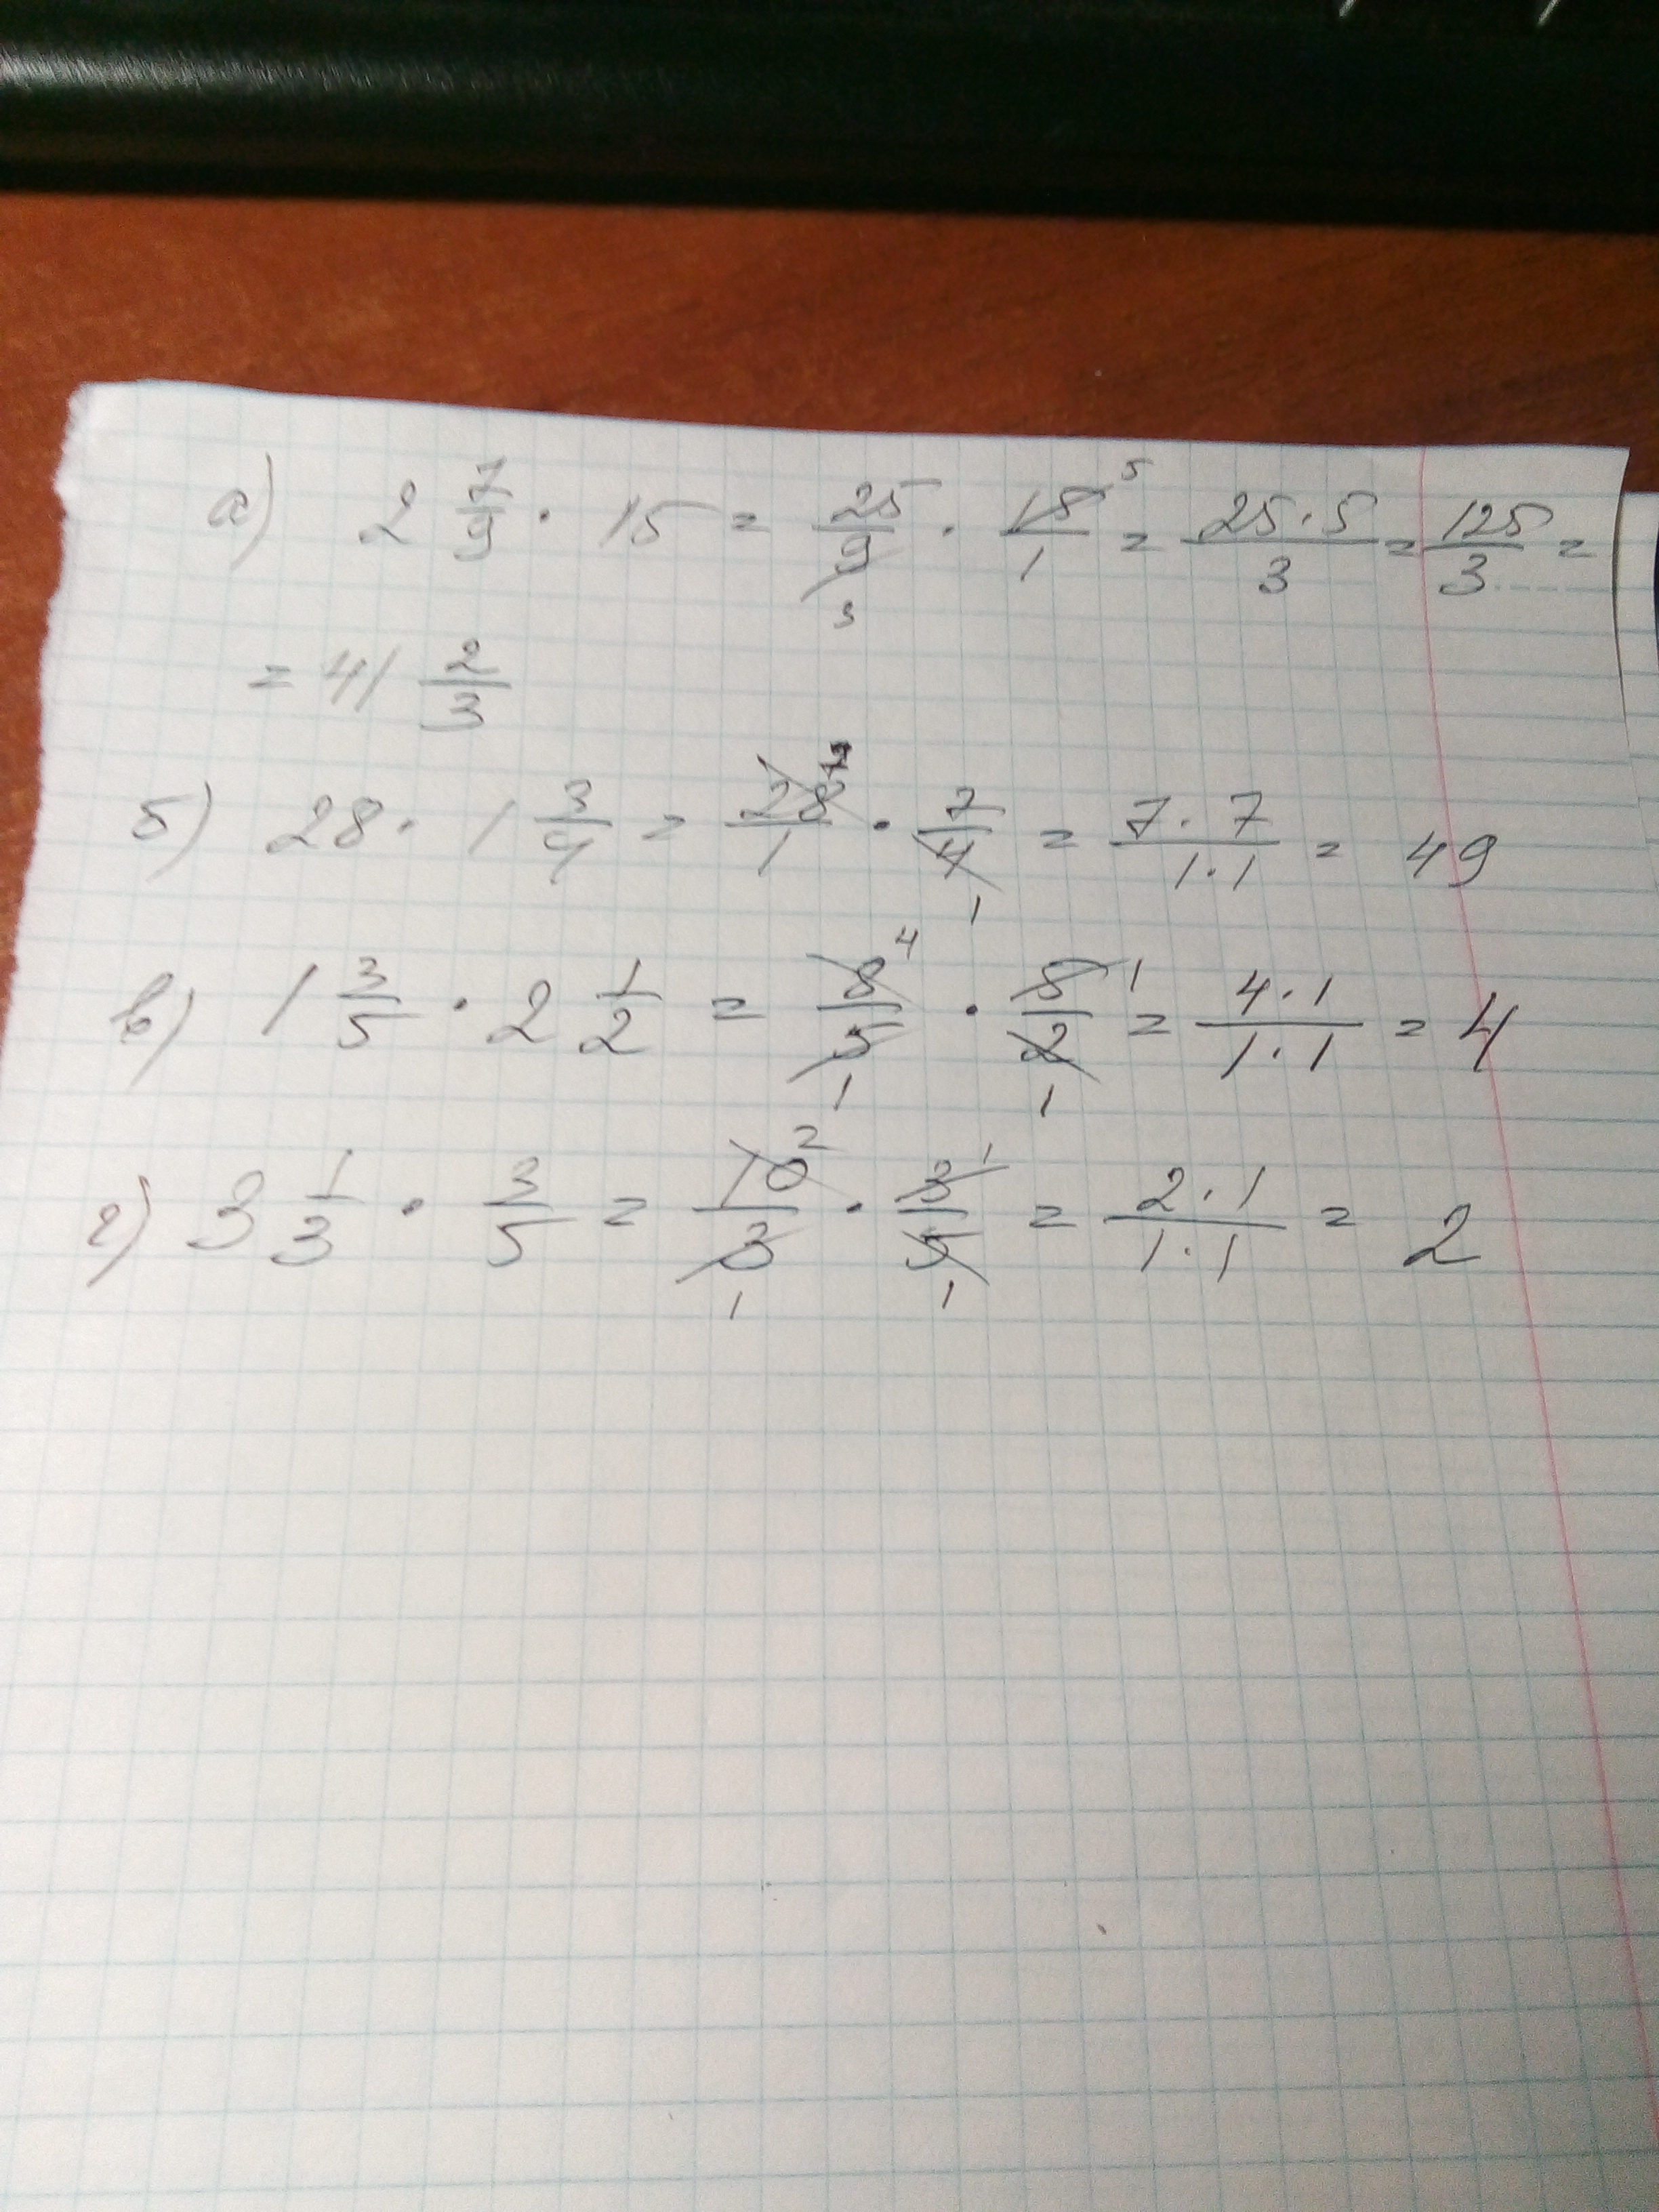 а) 2 7/9 · 15 = 25/9 3 · 15/1 5 = 25·5/3 = 125/3 =
= 41 2/3
б) 28 · 1 3/4 = 28/1 7 · 7/4 1 = 7·7/1·1 = 49
в) 1 3/5 · 2 1/2 = 8/5 4 1 · 5/2 1 1 = 4·1/1·1 = 4
г) 3 1/3 · 3/5 = 10/3 2 1 · 3/5 1 1 = 2·1/1·1 = 2